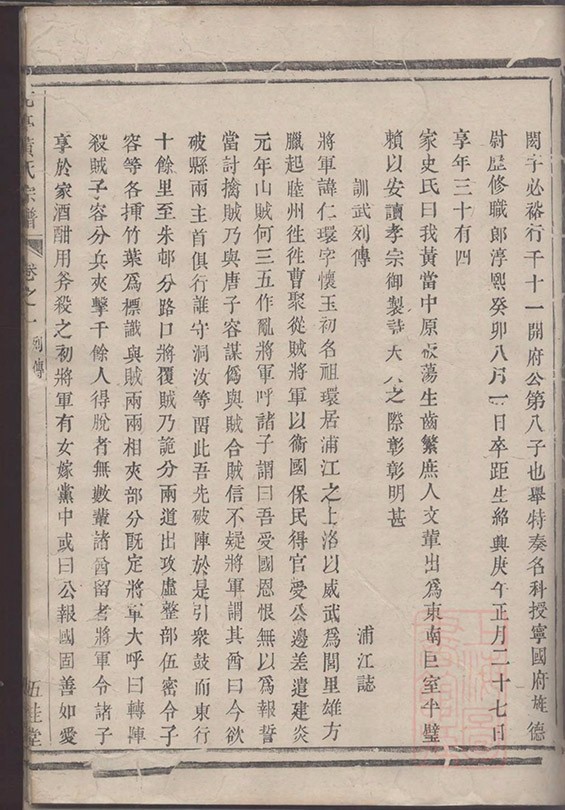 閎字必裕行千十一開府公第八子也舉特奏名科授寧國府旌德
尉歴修職郎淳熙癸卯八月一日卒距生紹興庚午正月二十七日
享年三十有四
家史氏曰我黃當中原板蕩生齒繁庶人文輩出爲東南巨室半璧
賴以安讀孝宗御製 天人之際彰彰明甚
訓武列傳 浦江誌
將軍諱仁環字懷玉初名祖環居浦江之上洛以威武爲閭里雄方
臘起睦州徃徃曹聚從賊將軍以衞國保民得官受公邊差遣建炎
元年山賊何三五作亂將軍呼諸子謂曰吾受國恩恨無以爲報誓
當討擒賊乃與唐子容謀僞與賊合賊信不疑將軍謂其酋曰今欲
破縣兩主首俱行誰守洞汝等留此吾先破陣於是引衆鼓而東行
十餘里至朱邨分路口將覆賊乃詭分兩道出攻虛整部伍密令子
容等各揷竹葉爲標識與賊兩兩相夾部分既定將軍大呼曰轉陣
殺賊子容分兵夾擊千餘人得脫者無數輩諸酋留者將軍令諸子
享於家酒酣用斧殺之初將軍有女嫁黨中或曰公報國固善如愛
黃氏宗譜 卷之一 列傳 五桂堂